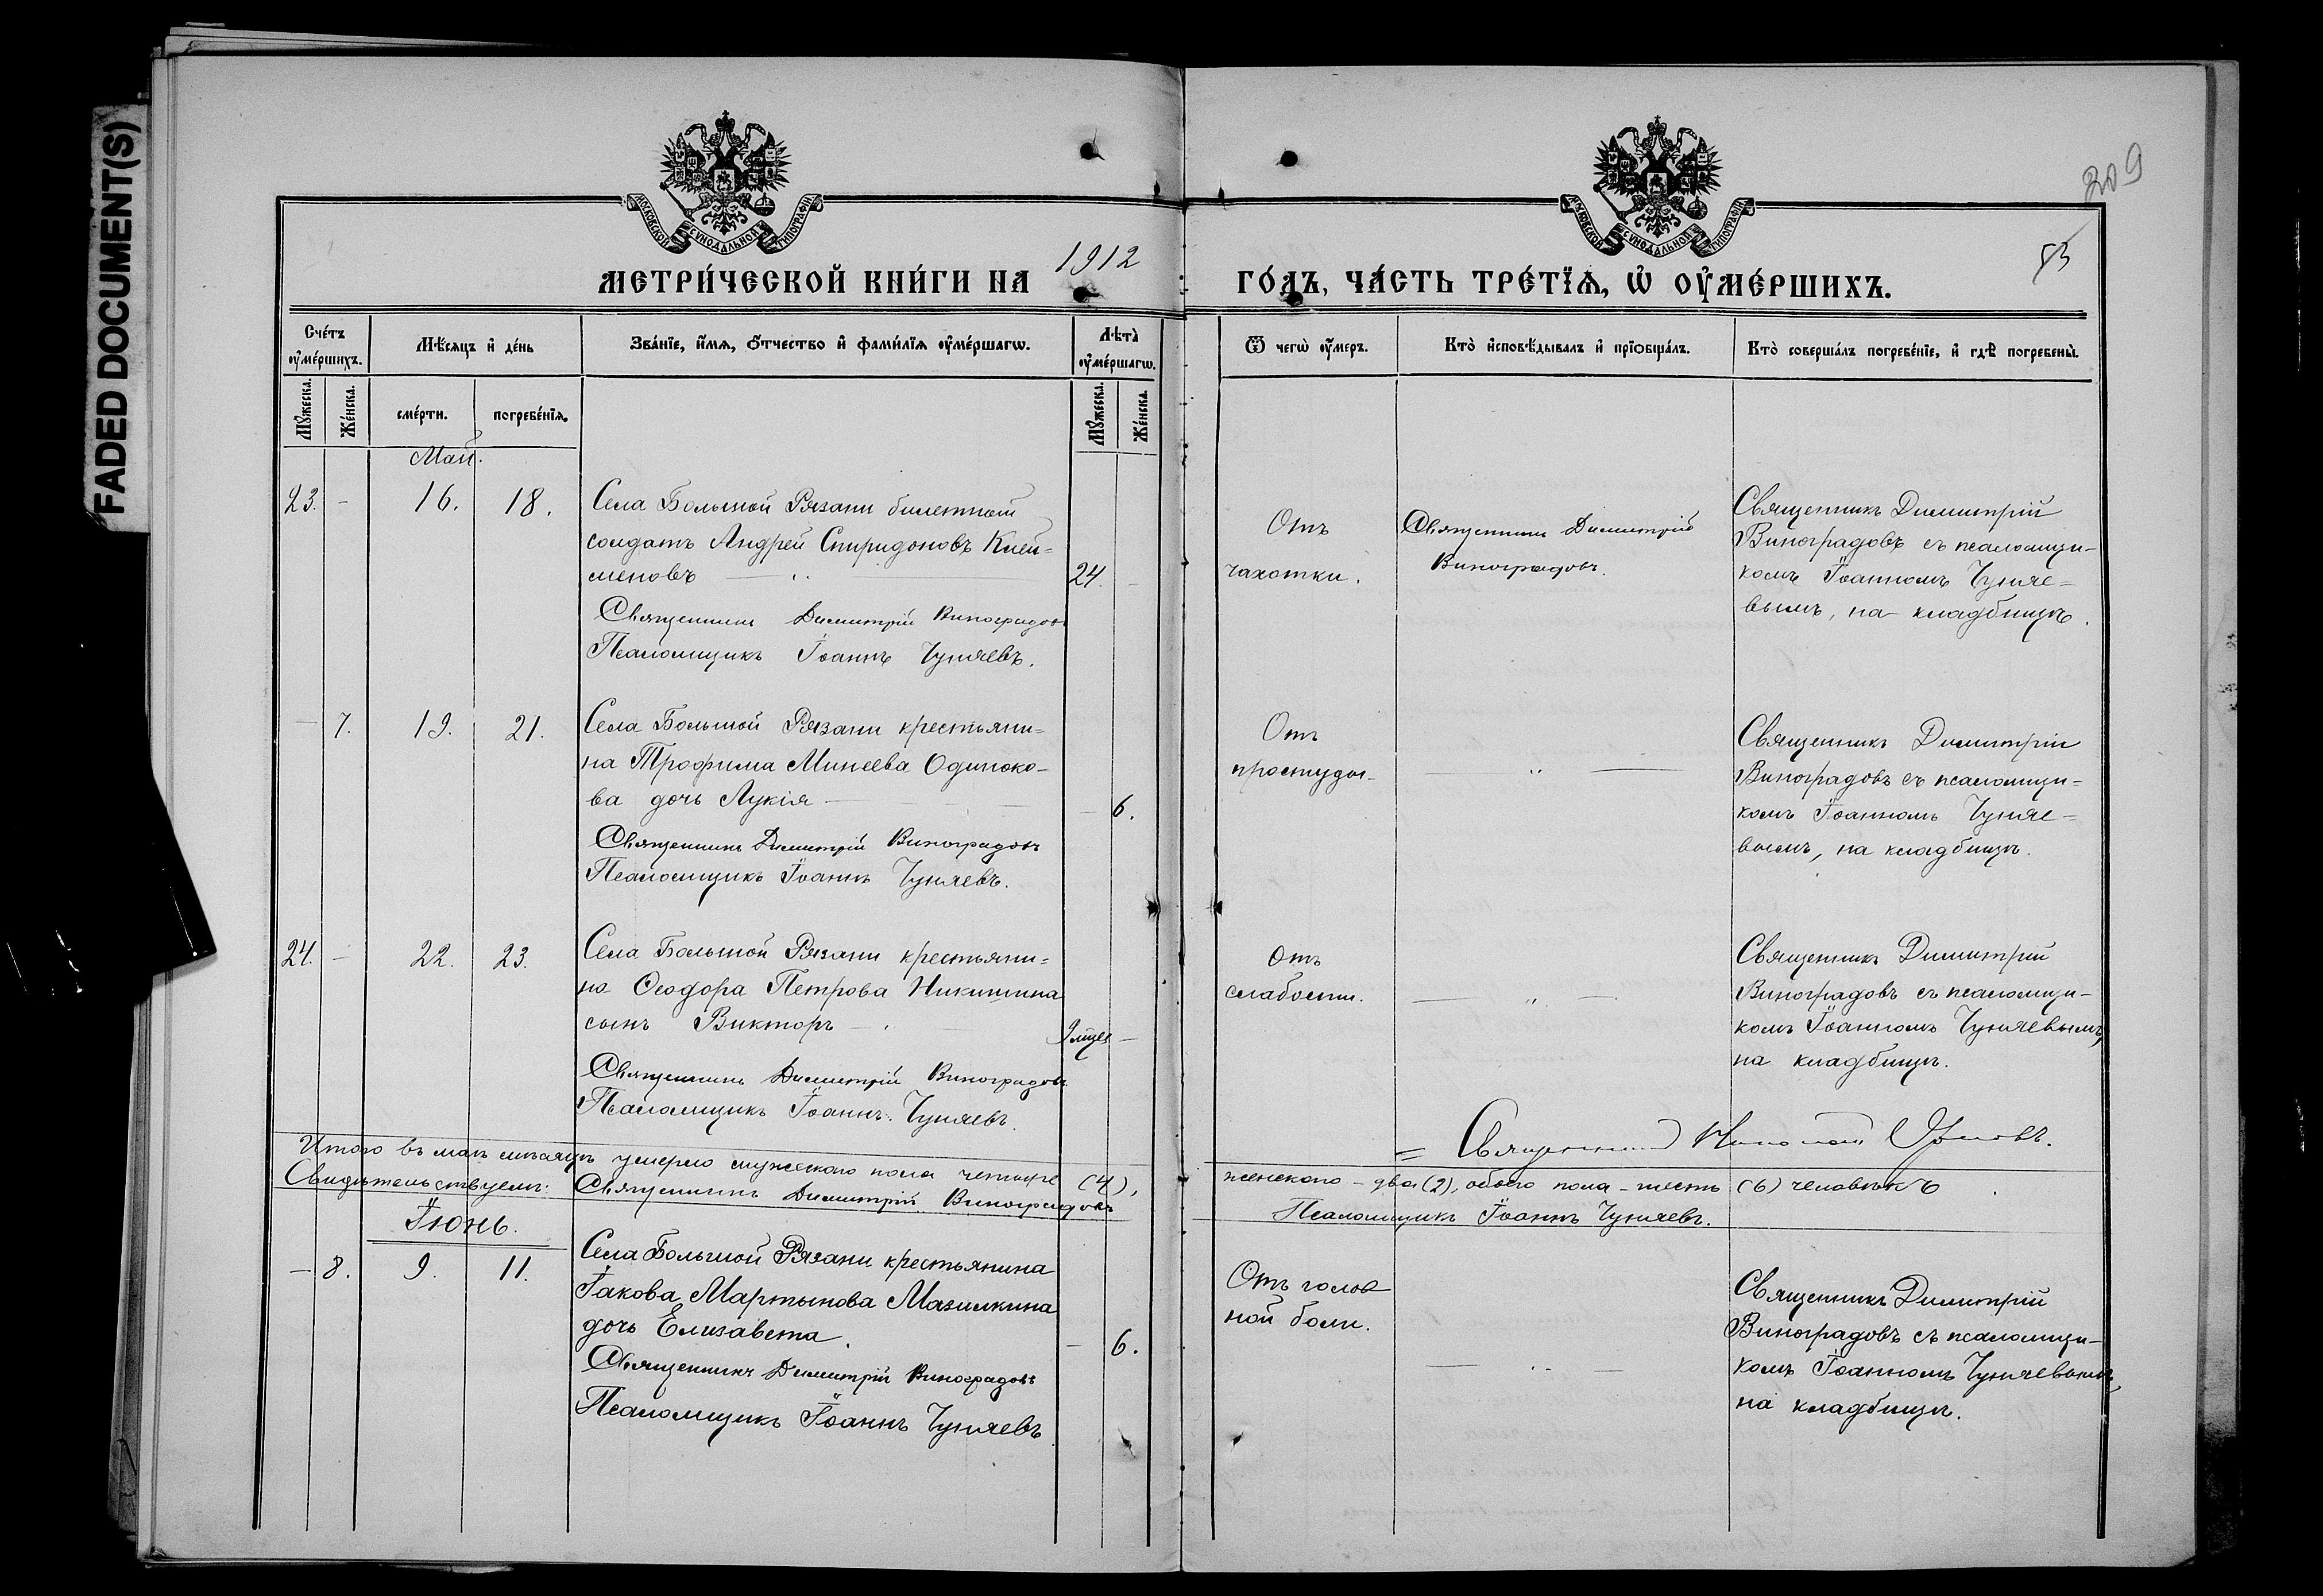 FADED DOCUMENT(S)
МОСКОВСКОЙ СѴНОДАЛЬНОЙ ТИПОГРАФІИ
МОСКОВСКОЙ СѴНОДАЛЬНОЙ ТИПОГРАФІИ
309
53
МЕТРИ́ЧЕСКОЙ КНИ́ГИ НА 1912 ГО́ДЪ, ЧА́СТЬ ТРЕ́ТЇѦ, Ѡ҆ ОУ҆МЕ́РШИХЪ.
Сче́тъ оу҆ме́ршихъ.
Мѣ́сяцъ и҆ де́нь
Зва́нїе, и҆́мѧ, ѻ҆́тчество и҆ фами́лїѧ оу҆ме́ршагѡ.
Лѣта̀ оу҆ме́ршагѡ.
Ѿ чегѡ̀ оу҆́меръ.
Кто̀ и҆сповѣ́дывалъ и҆ прїѡбща́лъ.
Кто̀ соверша́лъ погребе́нїе, и҆ гдѣ̀ погребены̀.
Мꙋ́жеска. Же́нска. сме́рти. погребе́нїѧ. Мꙋ́жеска. Же́нска.
Май.
23. - 16. 18.
Села Большой Рязани билетной
солдатъ Андрей Спиридоновъ Клей=
меновъ 24 -
Священникъ Димитрій Виноградовъ
Псаломщикъ Іоаннъ Чуняевъ.
Отъ
чахотки.
Священникъ Димитрій
Виноградовъ.
Священникъ Димитрій
Виноградовъ съ псаломщи-
комъ Іоанномъ Чуняе=
вымъ, на кладбищѣ.
- 7. 19. 21.
Села Большой Рязани крестьяни=
на Трофима Минеева Одиноко-
ва дочь Лукія - 6.
Священникъ Димитрій Виноградовъ
Псаломщикъ Іоаннъ Чуняевъ.
Отъ
простуды.
— " —
Священникъ Димитрій
Виноградовъ съ псаломщи=
комъ Іоанномъ Чуняе=
вымъ, на кладбищѣ.
24. - 22. 23.
Села Большой Рязани крестьяни=
на Ѳеодора Петрова Никишина
сынъ Викторъ 9 мцев -
Священникъ Димитрій Виноградовъ
Псаломщикъ Іоаннъ Чуняевъ.
Отъ
слабости.
— " —
Священникъ Димитрій
Виноградовъ съ псаломщи-
комъ Іоанномъ Чуняевымъ,
на кладбищѣ.
= Священникъ Орловъ.
Итого въ маѣ мѣсяцѣ умерло мужескаго пола четыре (4), женскаго - два (2), обоего пола - шесть (6) человѣкъ.
Свидѣтельствуемъ: Священникъ Димитрій Виноградовъ Псаломщикъ Іоаннъ Чуняевъ.
Іюнь.
- 8. 9. 11.
Села Большой Рязани крестьянина
Іакова Мартынова Мазилкина
дочь Елизавета. - 6.
Священникъ Димитрій Виноградовъ
Псаломщикъ Іоаннъ Чуняевъ
Отъ голов
ной боли.
— " —
Священникъ Димитрій
Виноградовъ съ псаломщи-
комъ Іоанномъ Чуняевымъ,
на кладбищѣ.